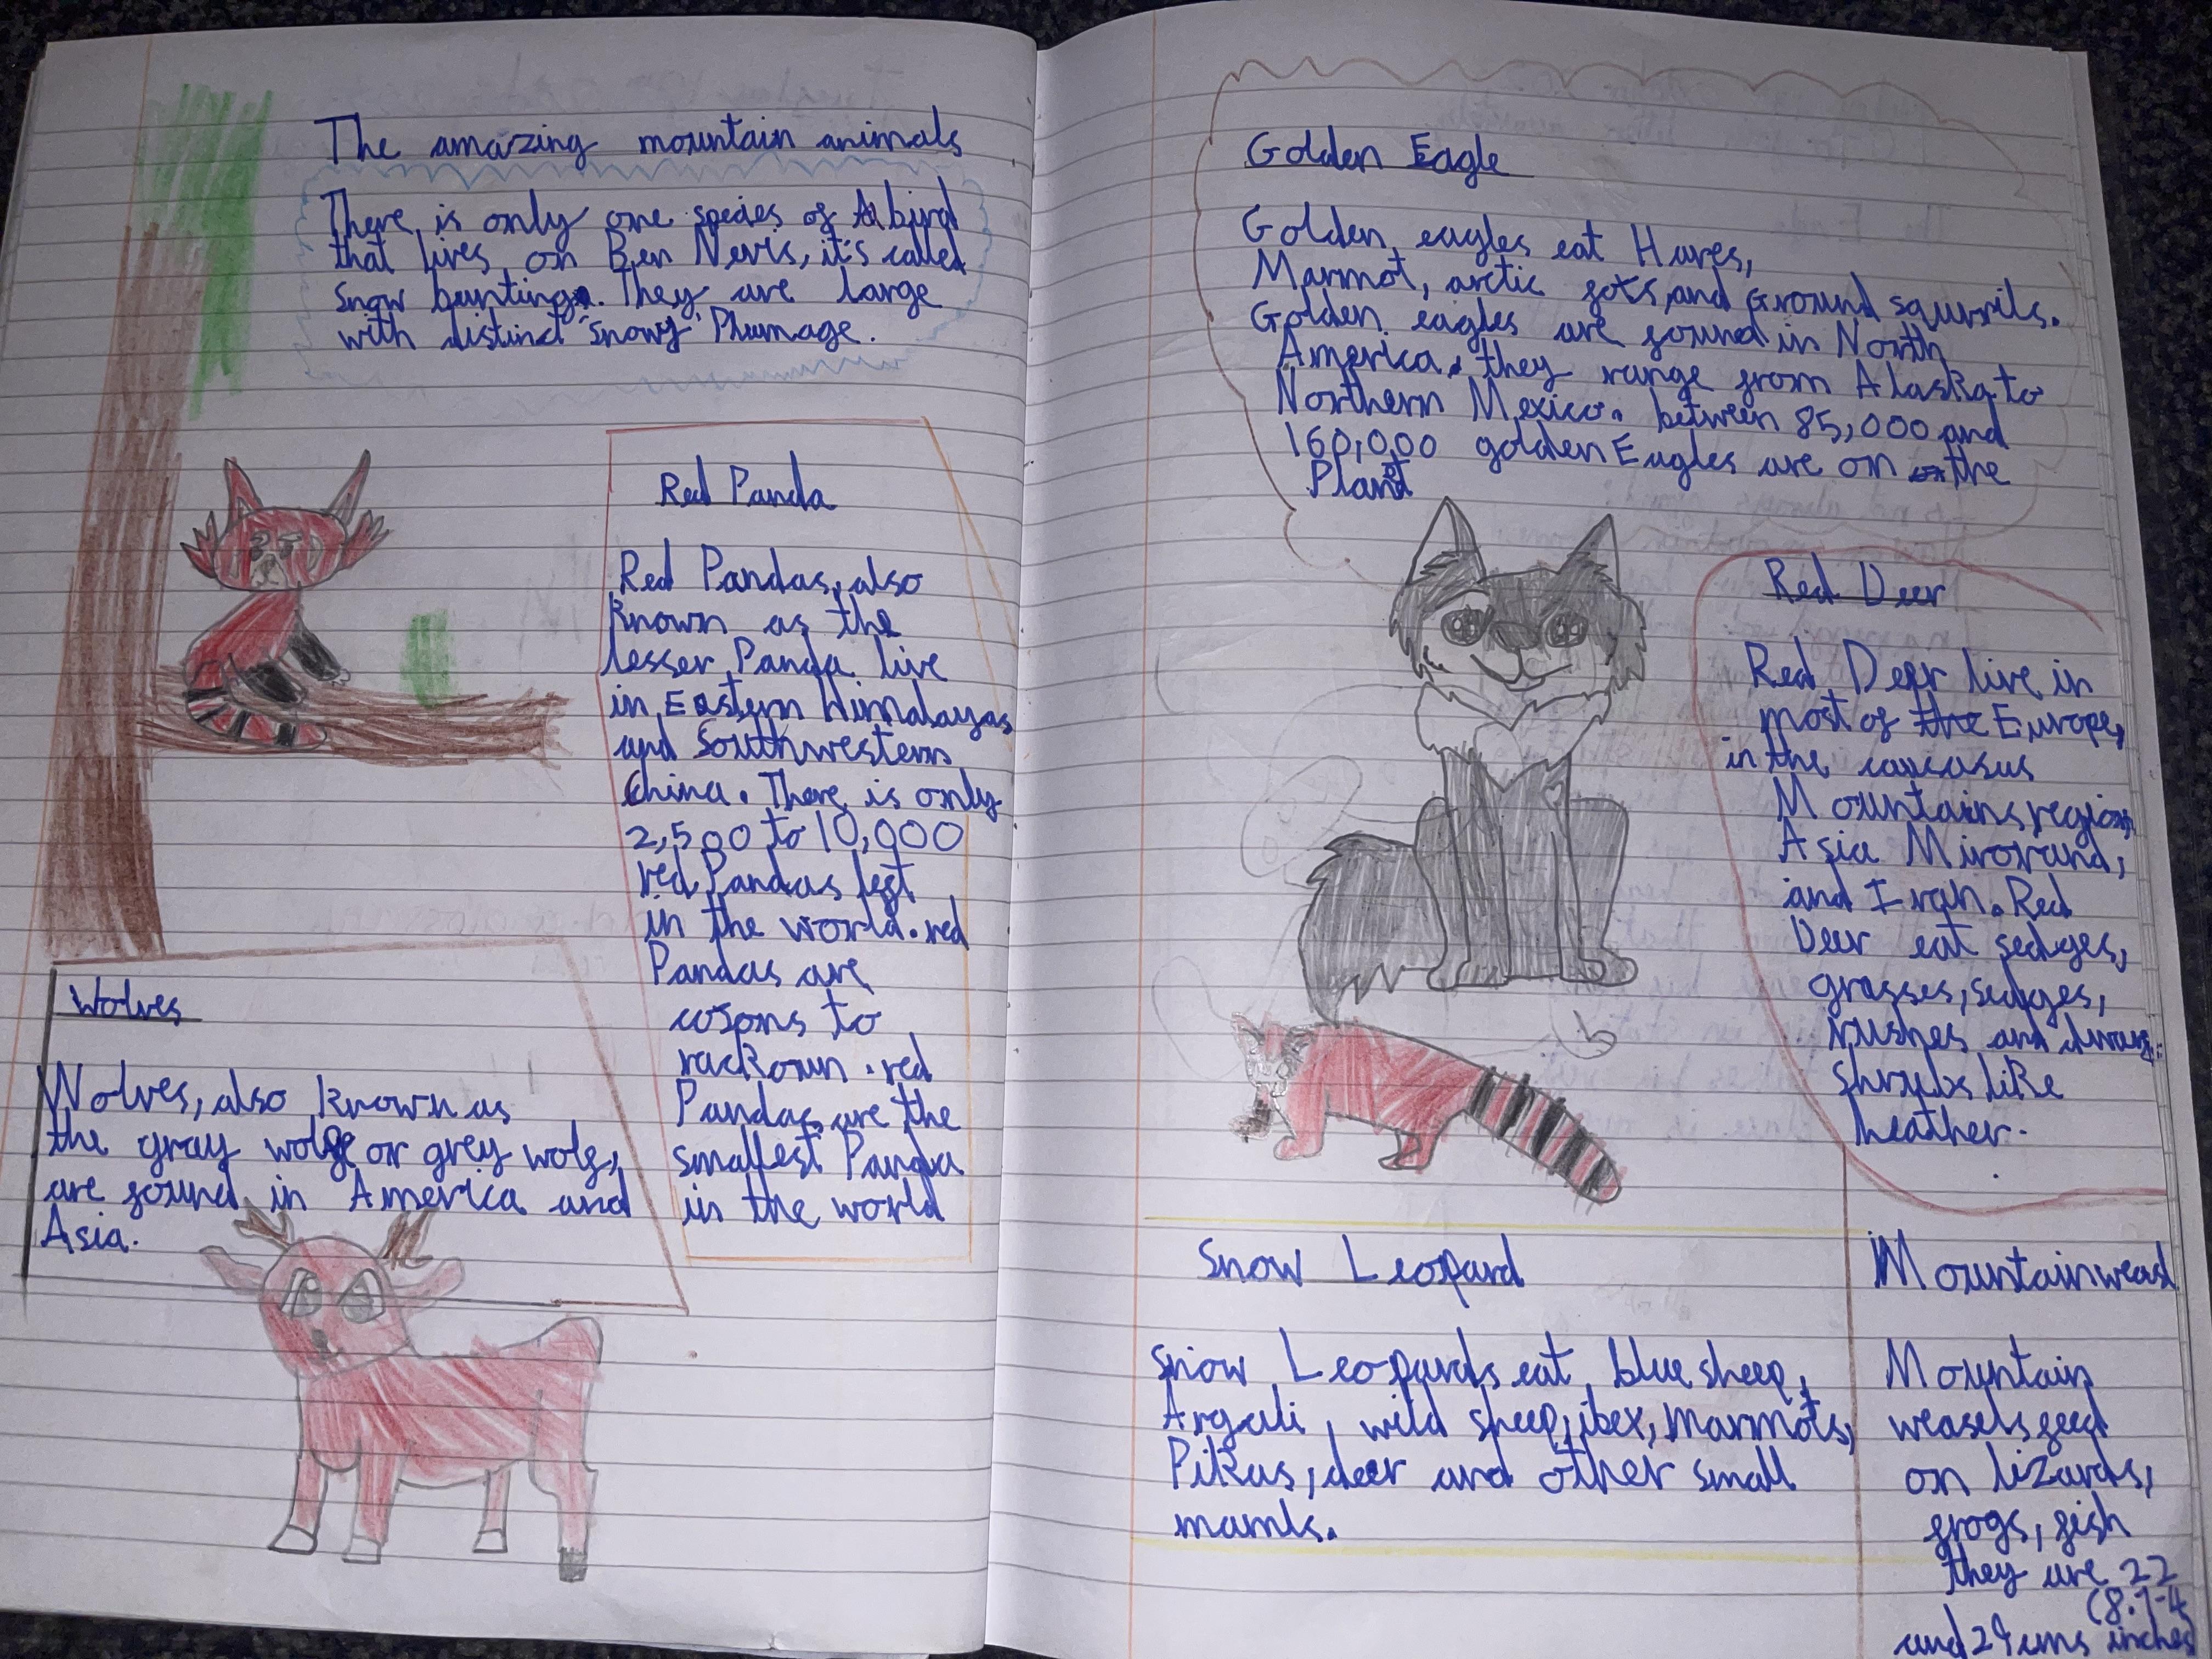 The amazing mountain animals
There is only one species of a bird
that lives on Ben Nevis, it's called
snow bunting. They are large
with distinct 'snowy' Plumage.
Red Panda
Red Pandas, also
known as the
lesser Panda live
in Eastern Himalayas
and Southwestern
China. There is only
2,500 to 10,000
red Pandas left
in the world. red
Pandas are
cosons to
rackoun. red
Pandas are the
smallest Panda
in the world
Wolves
Wolves, also known as
the gray wolf or grey wolf,
are found in America and
Asia.
Golden Eagle
Golden eagles eat Hares,
Marmot, arctic foxs, and Ground squrrils.
Golden eagles are found in North
America, they range from Alaska to
Northern Mexico. between 85,000 and
160,000 golden Eagles are on the
Planet
Red Deer
Red Deer live in
most of the Europe,
in the caucasus
Mountains region,
Asia
and Iran. Red
Deer eat sedges,
grasses, sedges,
rushes and
shrubs like
heather.
Snow Leopard
Snow Leopards eat blue sheep,
Argali, wild sheep, ibex, Marmots,
Pikas, deer and other small
mamls.
Mountain weasel
Mountain
weasels feed
on lizards,
frogs, fish
they are 22
(8.7-4
and 24 cms inches